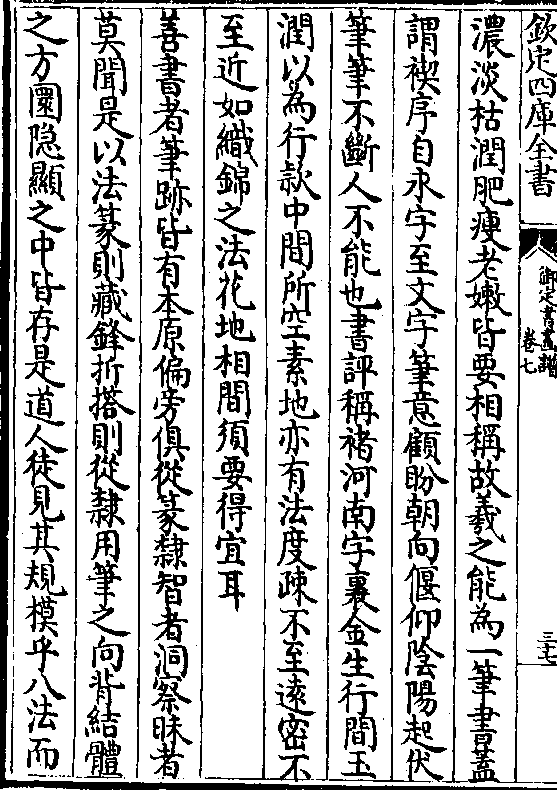 欽定四庫全書
御定書畫譜
卷七
三十七
濃淡枯潤肥瘦老嫩皆要相稱故羲之能為一筆書蓋
謂禊序自永字至文字筆意顧盼朝向偃仰陰陽起伏
筆筆不斷人不能也書評稱褚河南字裏金生行間玉
潤以為行款中間所空素地亦有法度疎不至遠密不
至近如織錦之法花地相間須要得宜耳
善書者筆跡皆有本原偏旁俱從篆隸智者洞察昧者
莫聞是以法篆則藏鋒折搭則從隸用筆之向背結體
之方圓隠顯之中皆存是道人徒見其規模乎八法而